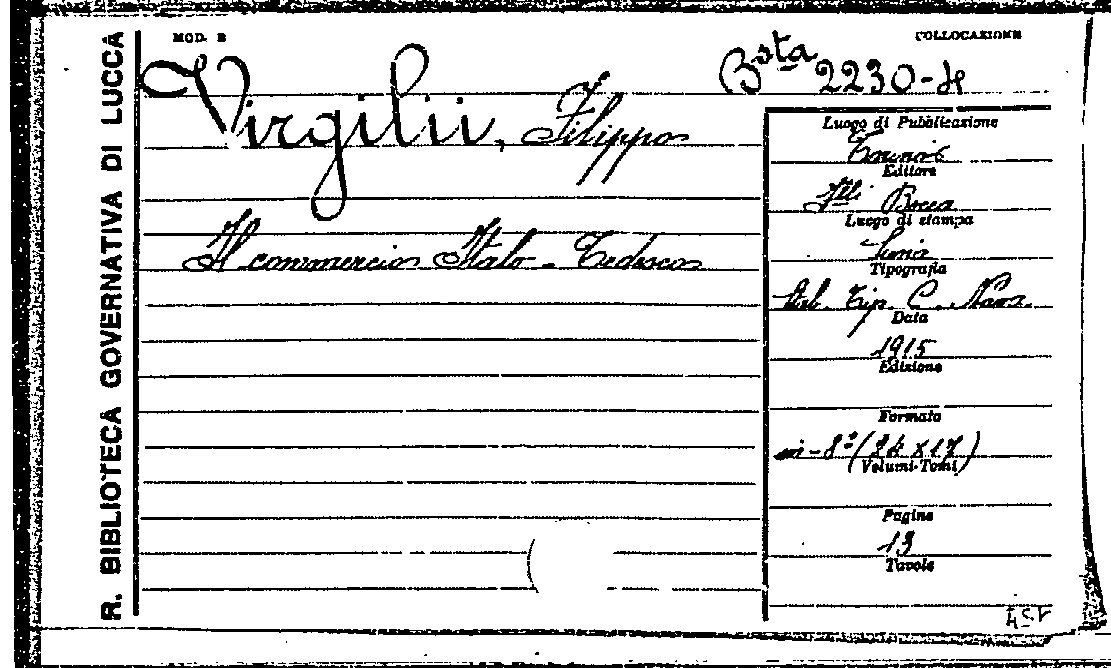 R. BIBLIOTECA GOVERNATIVA DI LUCCA
MOD. B
COLLOCAZIONE
Bsta 2230-
Virgilii, Filippo
Il commercio Italo-Tedesco
Luogo di Pubblicazione
Torino
Editore
Flli Bocca
Luogo di stampa
Tipografia
Tip. C. Nava
Data
1915
Edizione
Formato
in-8° (24 x 17)
Volumi-Tomi
Pagine
13
Tavole